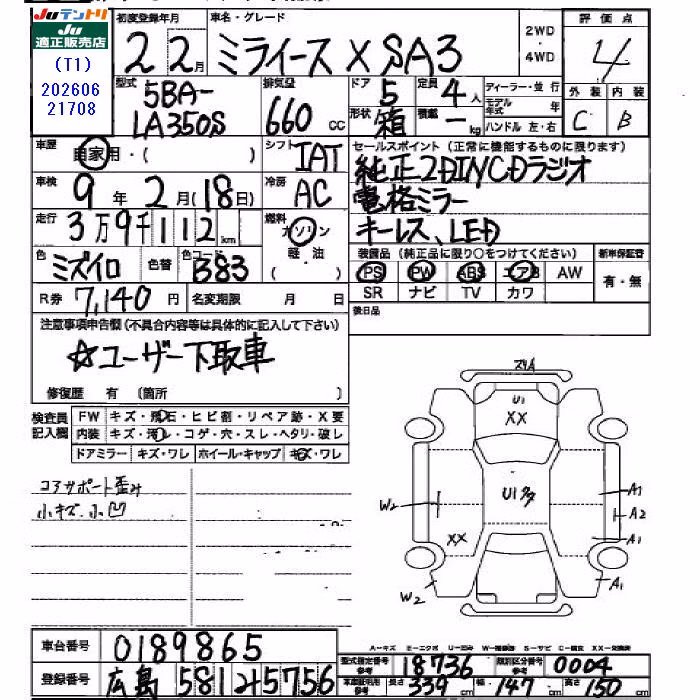 Juテントリ
Ju
適正販売店
(T1)
202606
21708
初度登録年月 車名・グレード 2WD 評価点
2 2月 ミライース X SA3 ・ 4WD 4
型式 排気量 ドア 定員 ディーラー・並行 外装 内装
5BA- 5 4人 モデル年式 年
LA350S 660 cc 形状 箱 積載 - kg ハンドル 左・右 C B
車歴 自家用・( ) シフト IAT セールスポイント (正常に機能するものに限ります)
純正2DINCDラジオ
車検 9年 2月(18日) 冷房 AC 電格ミラー
走行 3万9千112km 燃料 ガソリン キーレス、LED
軽・油 装備品 (純正品に限り○をつけてください) 新車保証書
色 ミズイロ 色替 色コード B83 ( ) PS PW ABS エアB AW 有・無
R券 7,140円 名変期限 月 日 SR ナビ TV カワ
注意事項申告欄 (不具合内容等は具体的に記入して下さい) 後日品
☆ユーザー下取車
修復歴 有 〔箇所 〕
検査員記入欄 FW キズ・飛石・ヒビ割・リペア跡・X要
内装 キズ・汚れ・コゲ・穴・スレ・ヘタリ・破レ
ドアミラー キズ・ワレ ホイール・キャップ キズ・ワレ
コアサポート歪み
小キズ、小凹
スリA
U1
XX
U1
W2
A1
A2
XX
A1
W2
A1
A-キズ E-エクボ U-凹み W-補修跡 S-サビ C-腐食 XX-交換済
車台番号 0189865
型式指定番号 参考 18736 類別区分番号 参考 0004
登録番号 広島 581 せ 5756
車車証明用 参考 長さ 339cm 幅 147cm 高さ 150cm